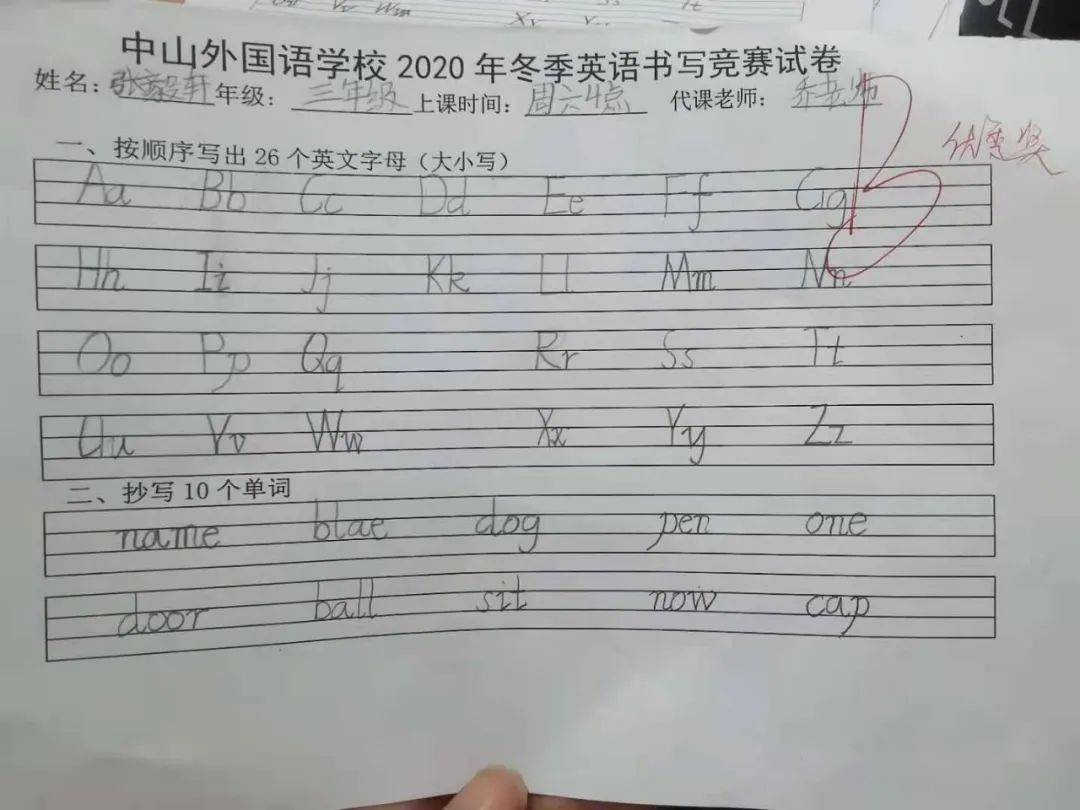 中山外国语学校 2020 年冬季英语书写竞赛试卷
姓名：张毅轩 年级：三年级 上课时间：周六4点 代课老师：乔老师
优秀奖
一、按顺序写出 26 个英文字母（大小写）
Aa Bb Cc Dd Ee Ff Gg
Hh Ii Jj Kk Ll Mm Nn
Oo Pp Qq Rr Ss Tt
Uu Vv Ww Xx Yy Zz
二、抄写 10 个单词
name blae dog pen one
door ball sit now cap